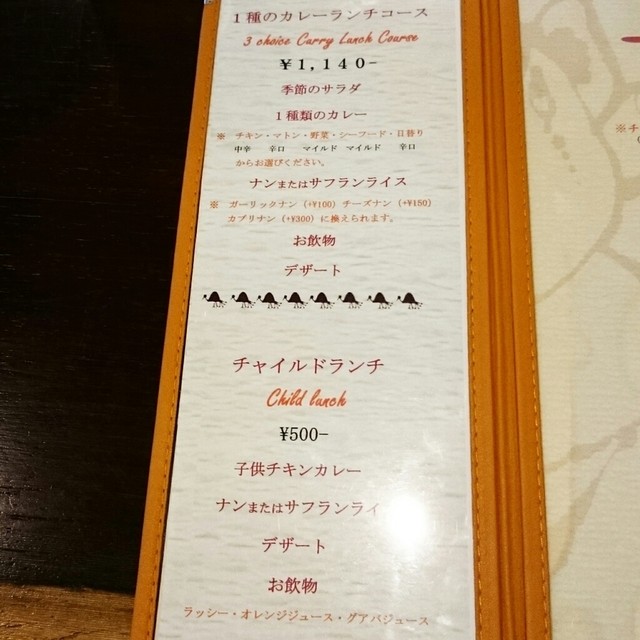 1種のカレーランチコース
3 choice Curry Lunch Course
¥1,140-
季節のサラダ
1種類のカレー
※ チキン・マトン・野菜・シーフード・日替り
中辛 辛口 マイルド マイルド 辛口
からお選びください。
ナンまたはサフランライス
※ ガーリックナン（+¥100）チーズナン（+¥150）
カブリナン（+¥300）に換えられます。
お飲物
デザート
チャイルドランチ
Child lunch
¥500-
子供チキンカレー
ナンまたはサフランライ
デザート
お飲物
ラッシー・オレンジジュース・グアバジュース
※チ